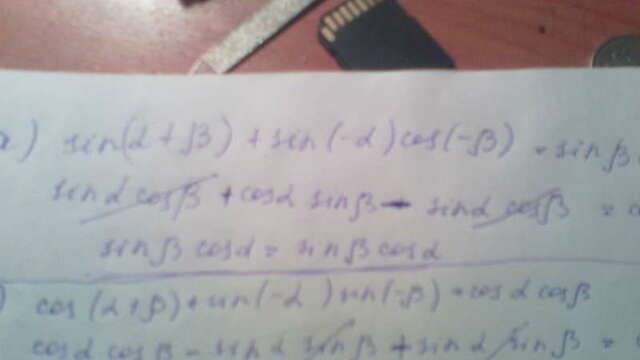 a) sin(α+β) + sin(-α)cos(-β) = sin β
sin α cos β + cos α sin β - sin α cos β =
sin β cos α = sin β cos α
) cos(α+β) + sin(-α) sin(-β) = cos α cos β
cos α cos β - sin α sin β + sin α sin β =